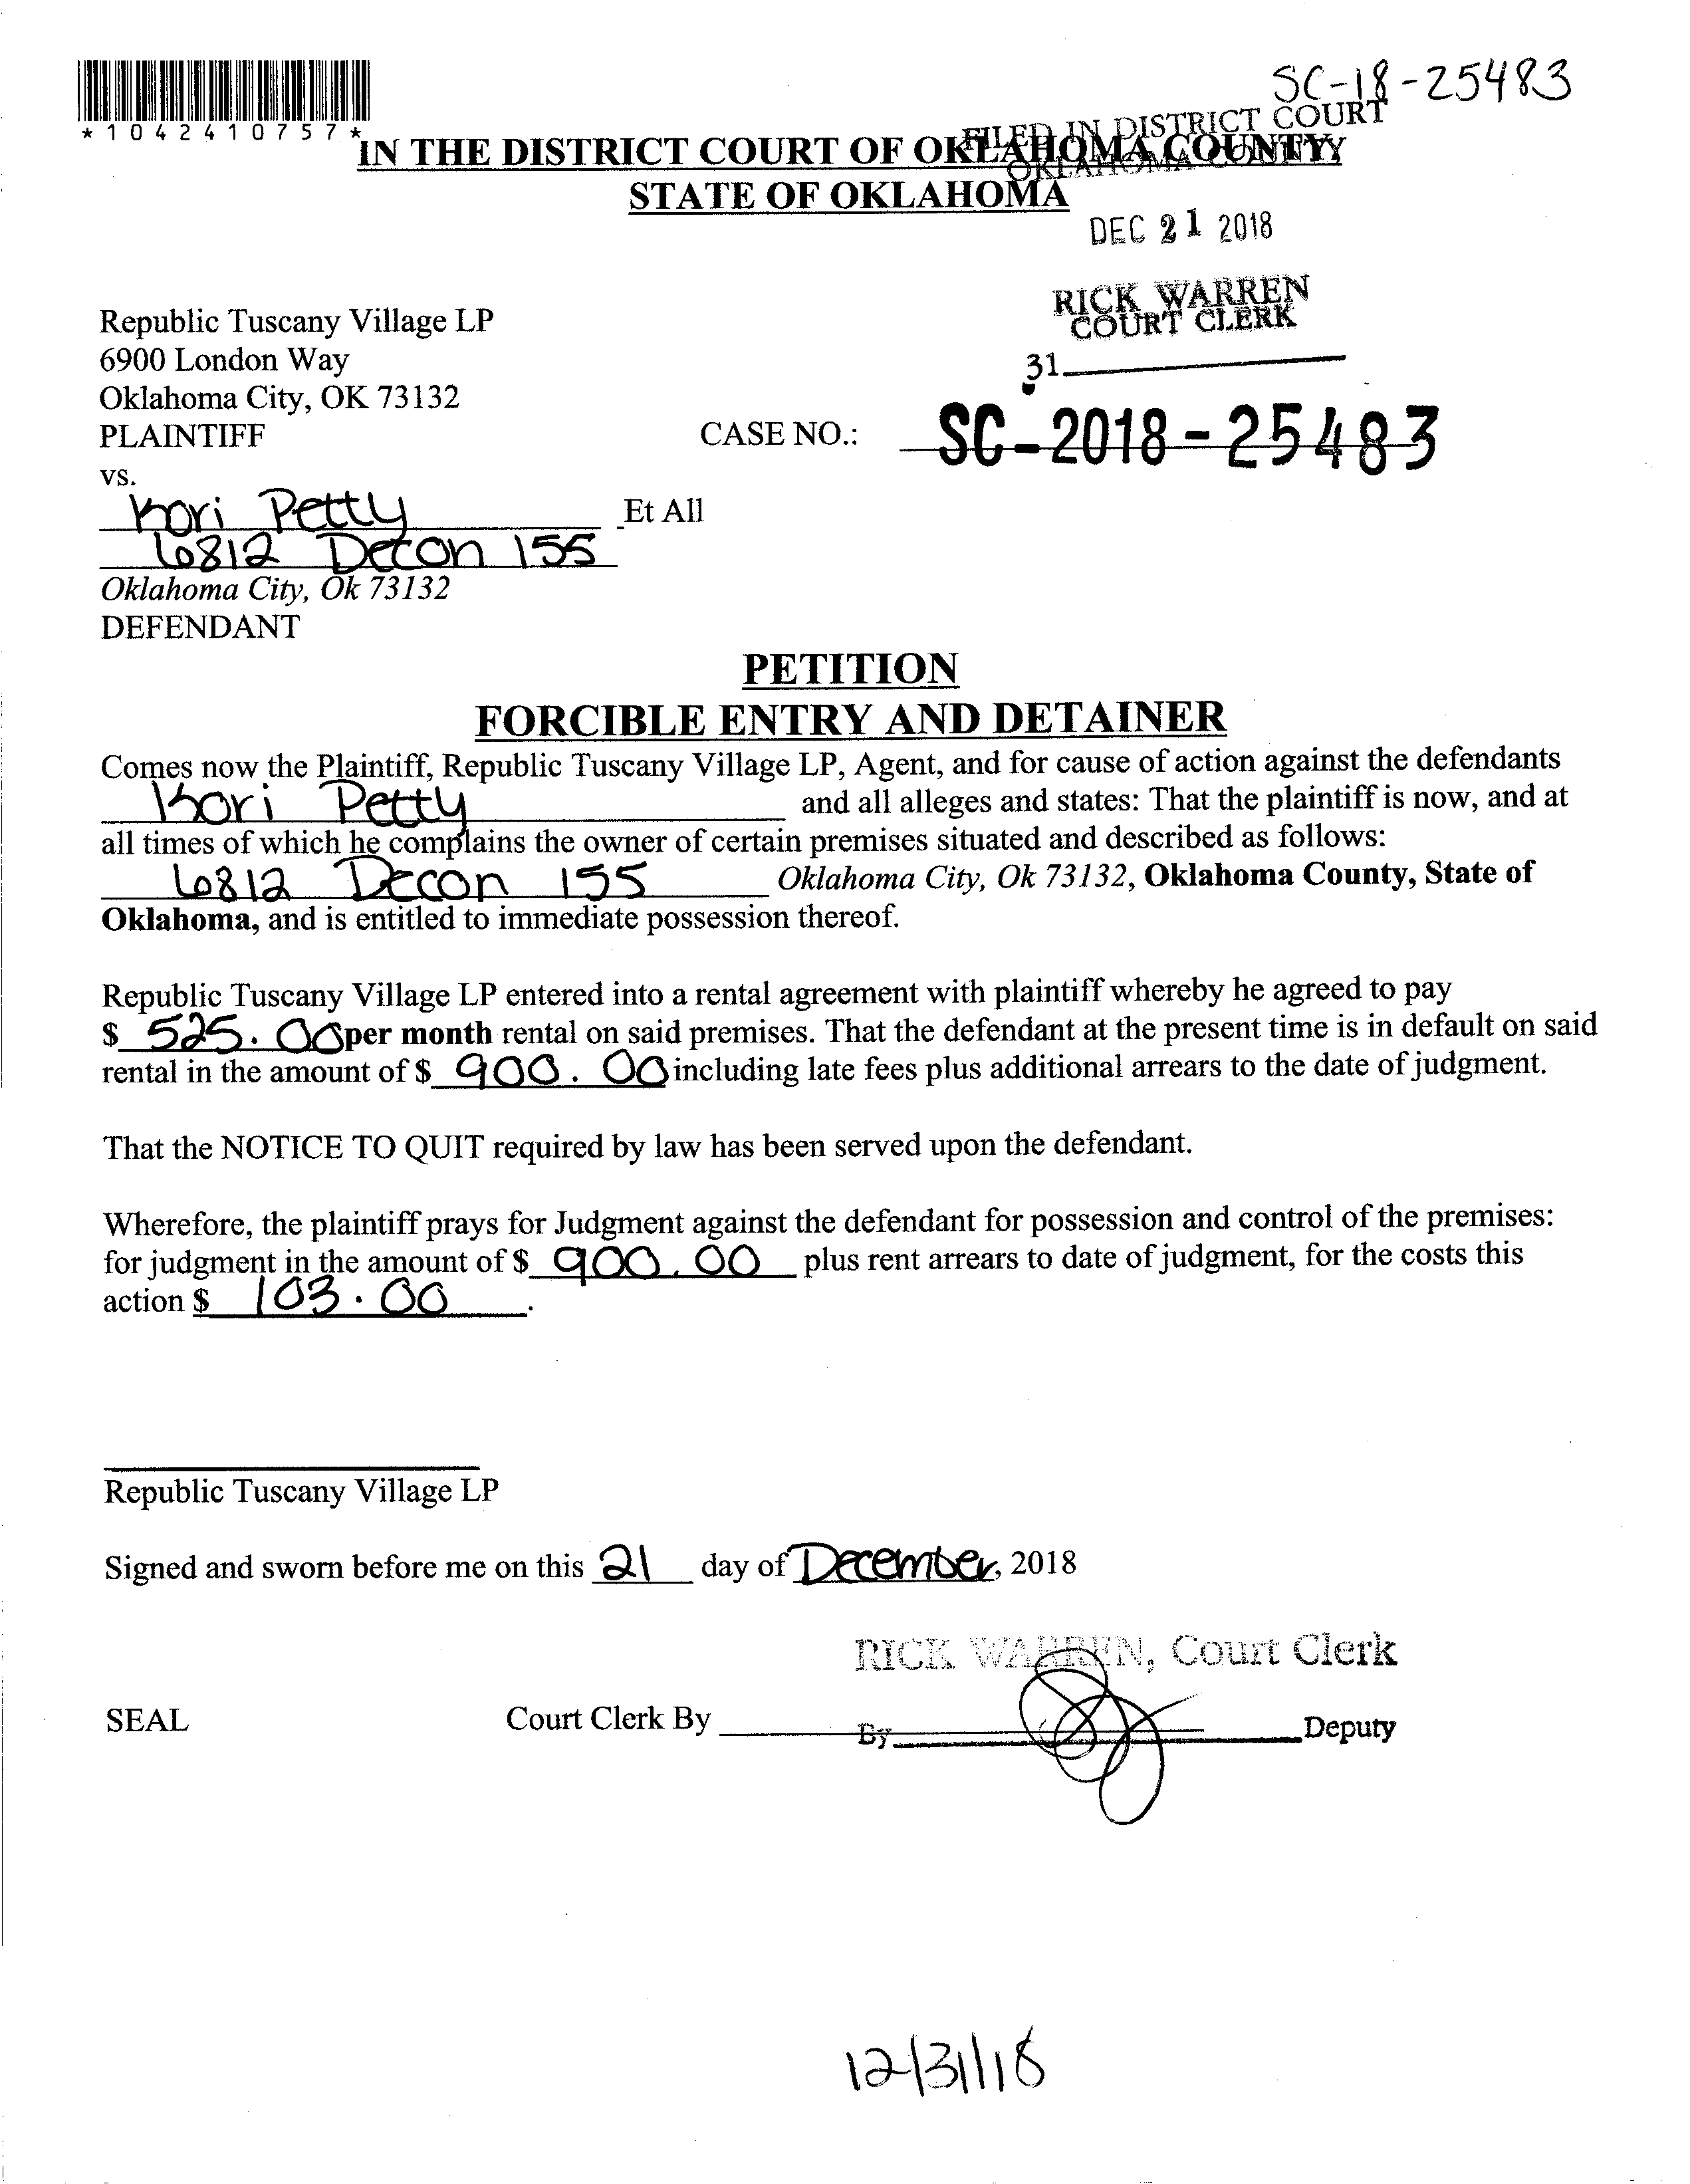 SC-18-25483
*1042410757*
FILED IN DISTRICT COURT
OKLAHOMA COUNTY
IN THE DISTRICT COURT OF OKLAHOMA COUNTY
STATE OF OKLAHOMA
DEC 21 2018
RICK WARREN
COURT CLERK
31
Republic Tuscany Village LP
6900 London Way
Oklahoma City, OK 73132
PLAINTIFF
CASE NO.: SC-2018-25483
vs.
Kori Petty Et All
6812 Decon 155
Oklahoma City, Ok 73132
DEFENDANT
PETITION
FORCIBLE ENTRY AND DETAINER
Comes now the Plaintiff, Republic Tuscany Village LP, Agent, and for cause of action against the defendants
Kori Petty and all alleges and states: That the plaintiff is now, and at
all times of which he complains the owner of certain premises situated and described as follows:
6812 Decon 155 Oklahoma City, Ok 73132, Oklahoma County, State of
Oklahoma, and is entitled to immediate possession thereof.
Republic Tuscany Village LP entered into a rental agreement with plaintiff whereby he agreed to pay
$ 525.00 per month rental on said premises. That the defendant at the present time is in default on said
rental in the amount of $ 900.00 including late fees plus additional arrears to the date of judgment.
That the NOTICE TO QUIT required by law has been served upon the defendant.
Wherefore, the plaintiff prays for Judgment against the defendant for possession and control of the premises:
for judgment in the amount of $ 900.00 plus rent arrears to date of judgment, for the costs this
action $ 103.00.
Republic Tuscany Village LP
Signed and sworn before me on this 21 day of December, 2018
RICK WARREN, Court Clerk
SEAL Court Clerk By By Deputy
12/31/18